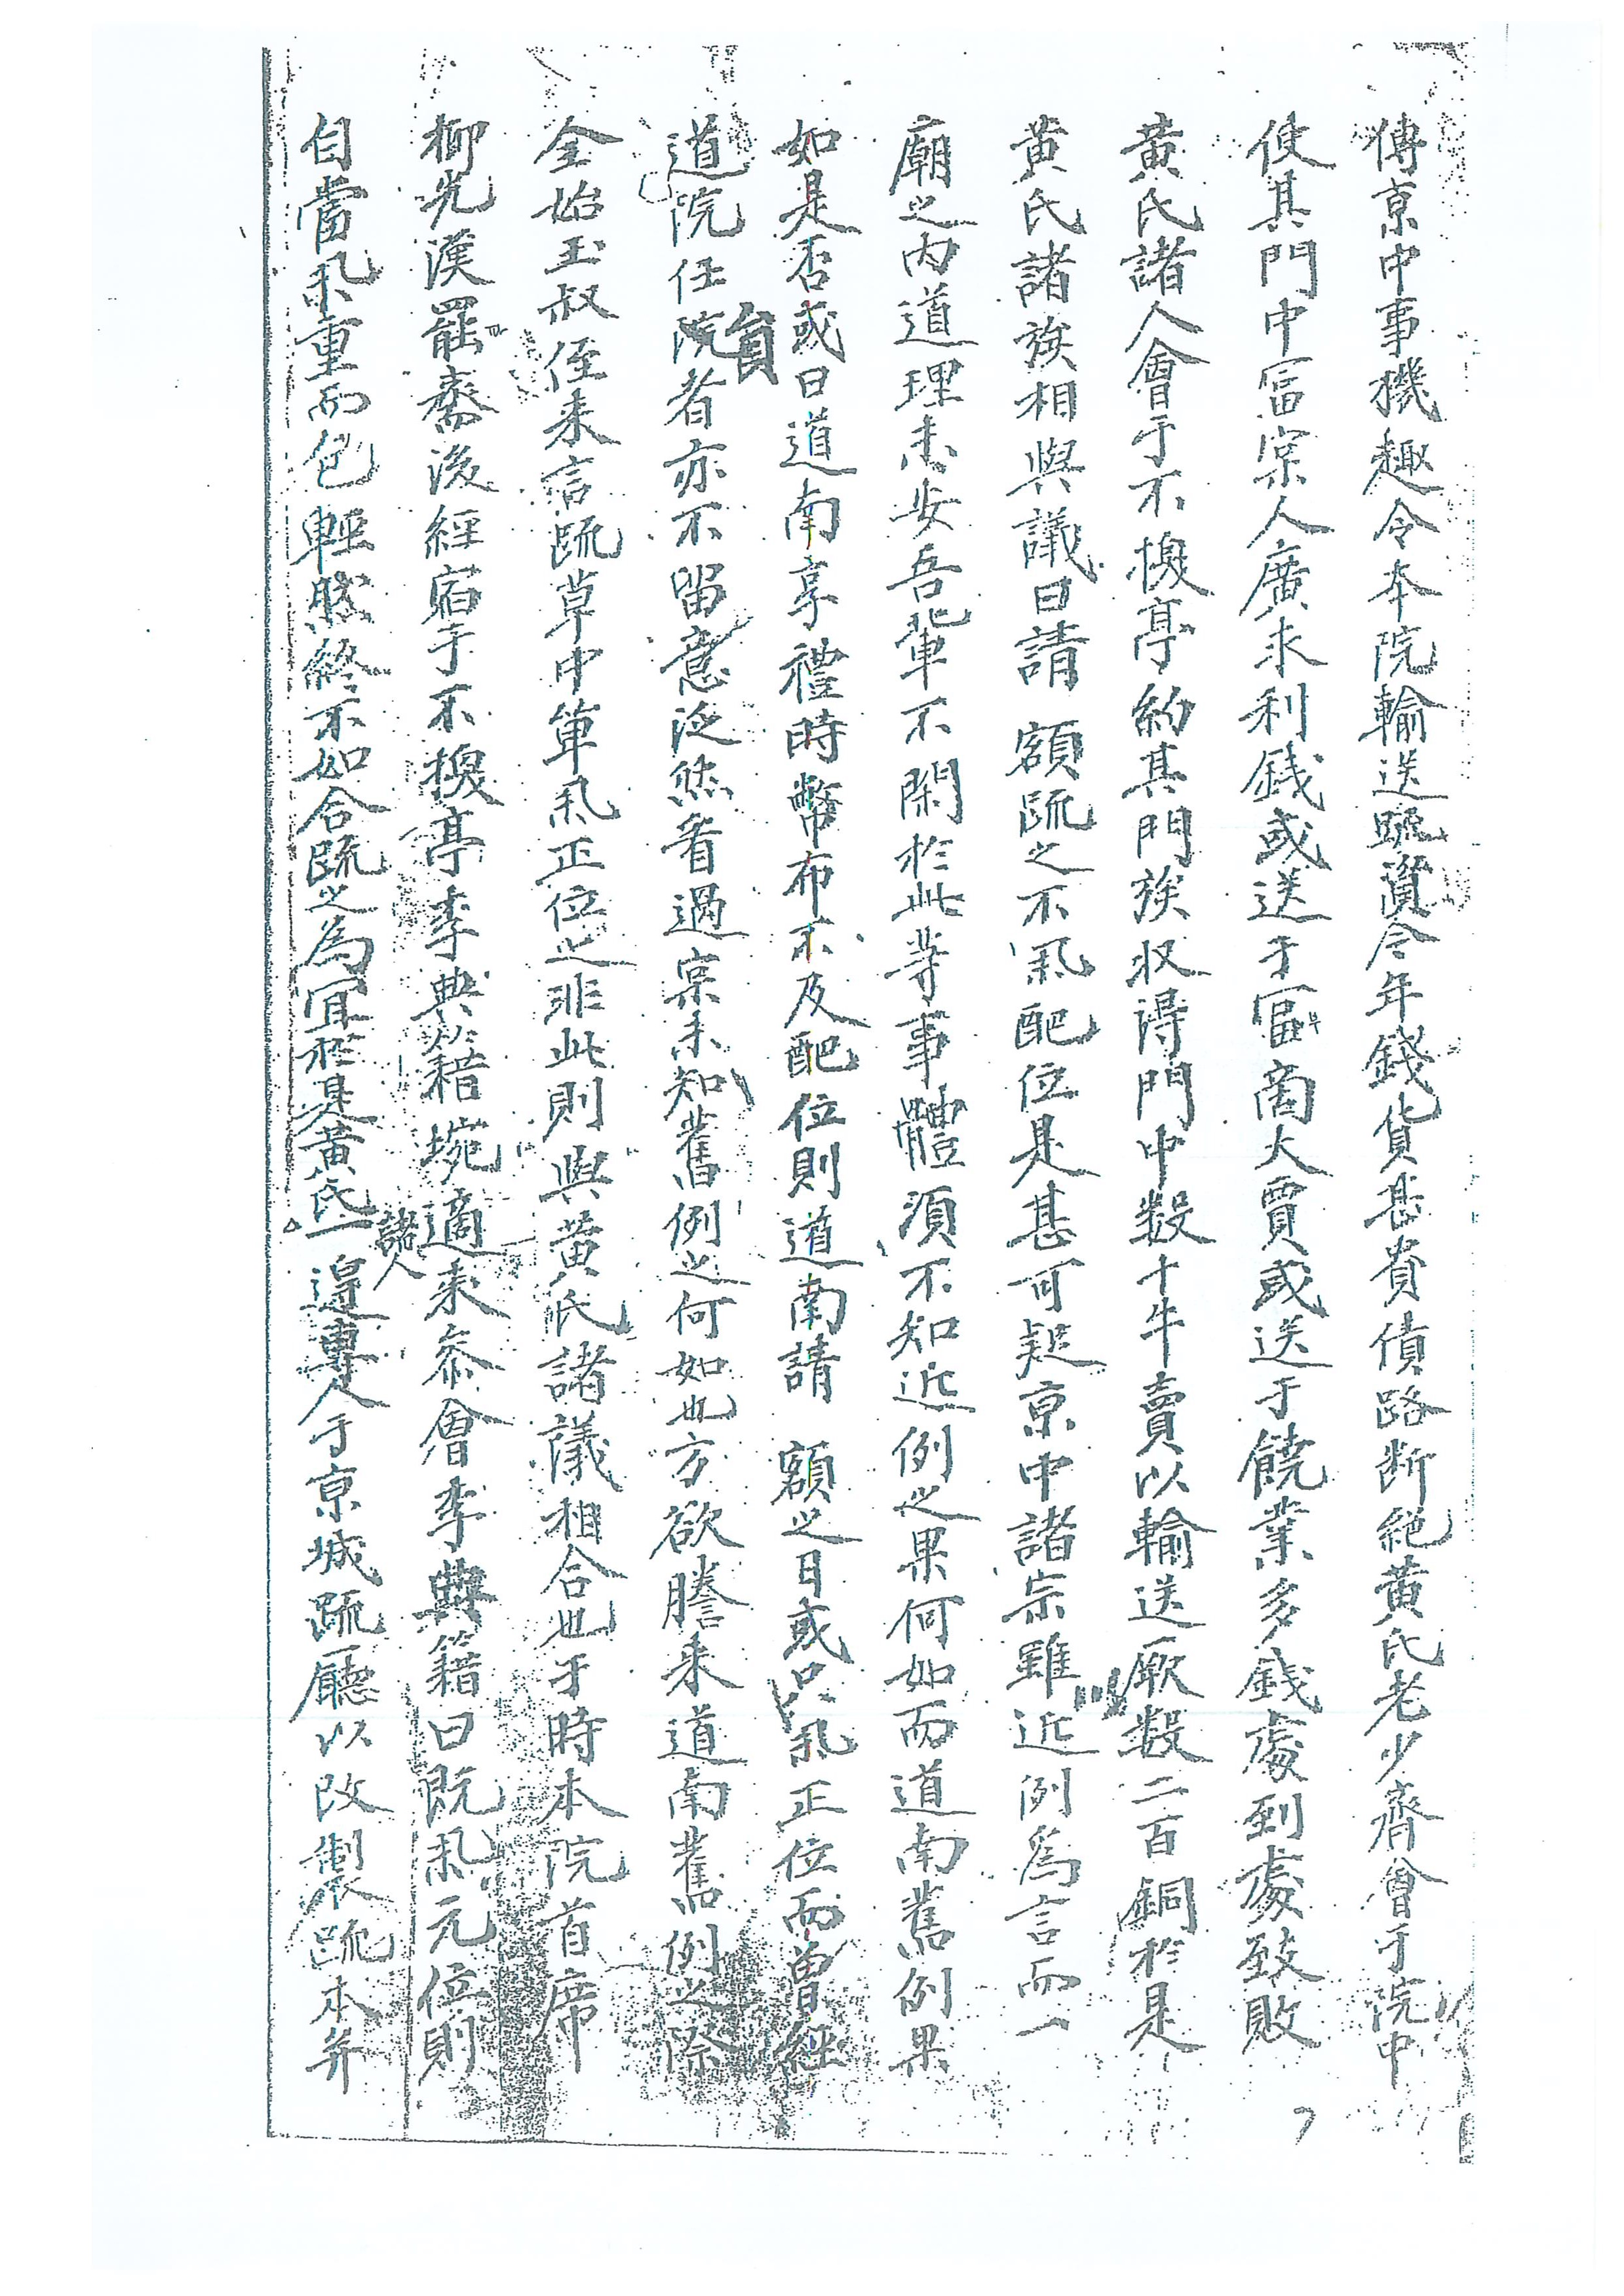 傳京中事機趣令本院輸送疏資今年錢貨甚貴債路斷絕黃氏老少齊會于院中
使其門中富宗人廣求利錢或送于富商大賈或送于饒業多錢處到處致敗
黃氏諸人會于不換亭約其門族收得門中數十牛賣以輸送厥數二百銅於是
黃氏諸族相與議曰請 額疏之不爲配位是甚可疑京中諸宗雖以近例爲言而一
廟之內道理未安吾輩不閑於此等事體須不知近例之果何如而道南舊例果
如是否或曰道南享禮時幣布不及配位則道南請 額之日或只爲正位而曾經
道院任員院者亦不留意泛然看過宗未知舊例之何如也方欲謄來道南舊例之際
金始玉叔侄來言疏草中單爲正位之非此則與黃氏諸議相合也于時本院首席
柳光漢罷齋後經宿于不換亭李典籍埦適來參會李典籍曰旣爲元位則
自當爲重而包輕然終不如合疏之爲宜於是黃氏諸人一邊專人于京城疏廳以改製疏本幷
7